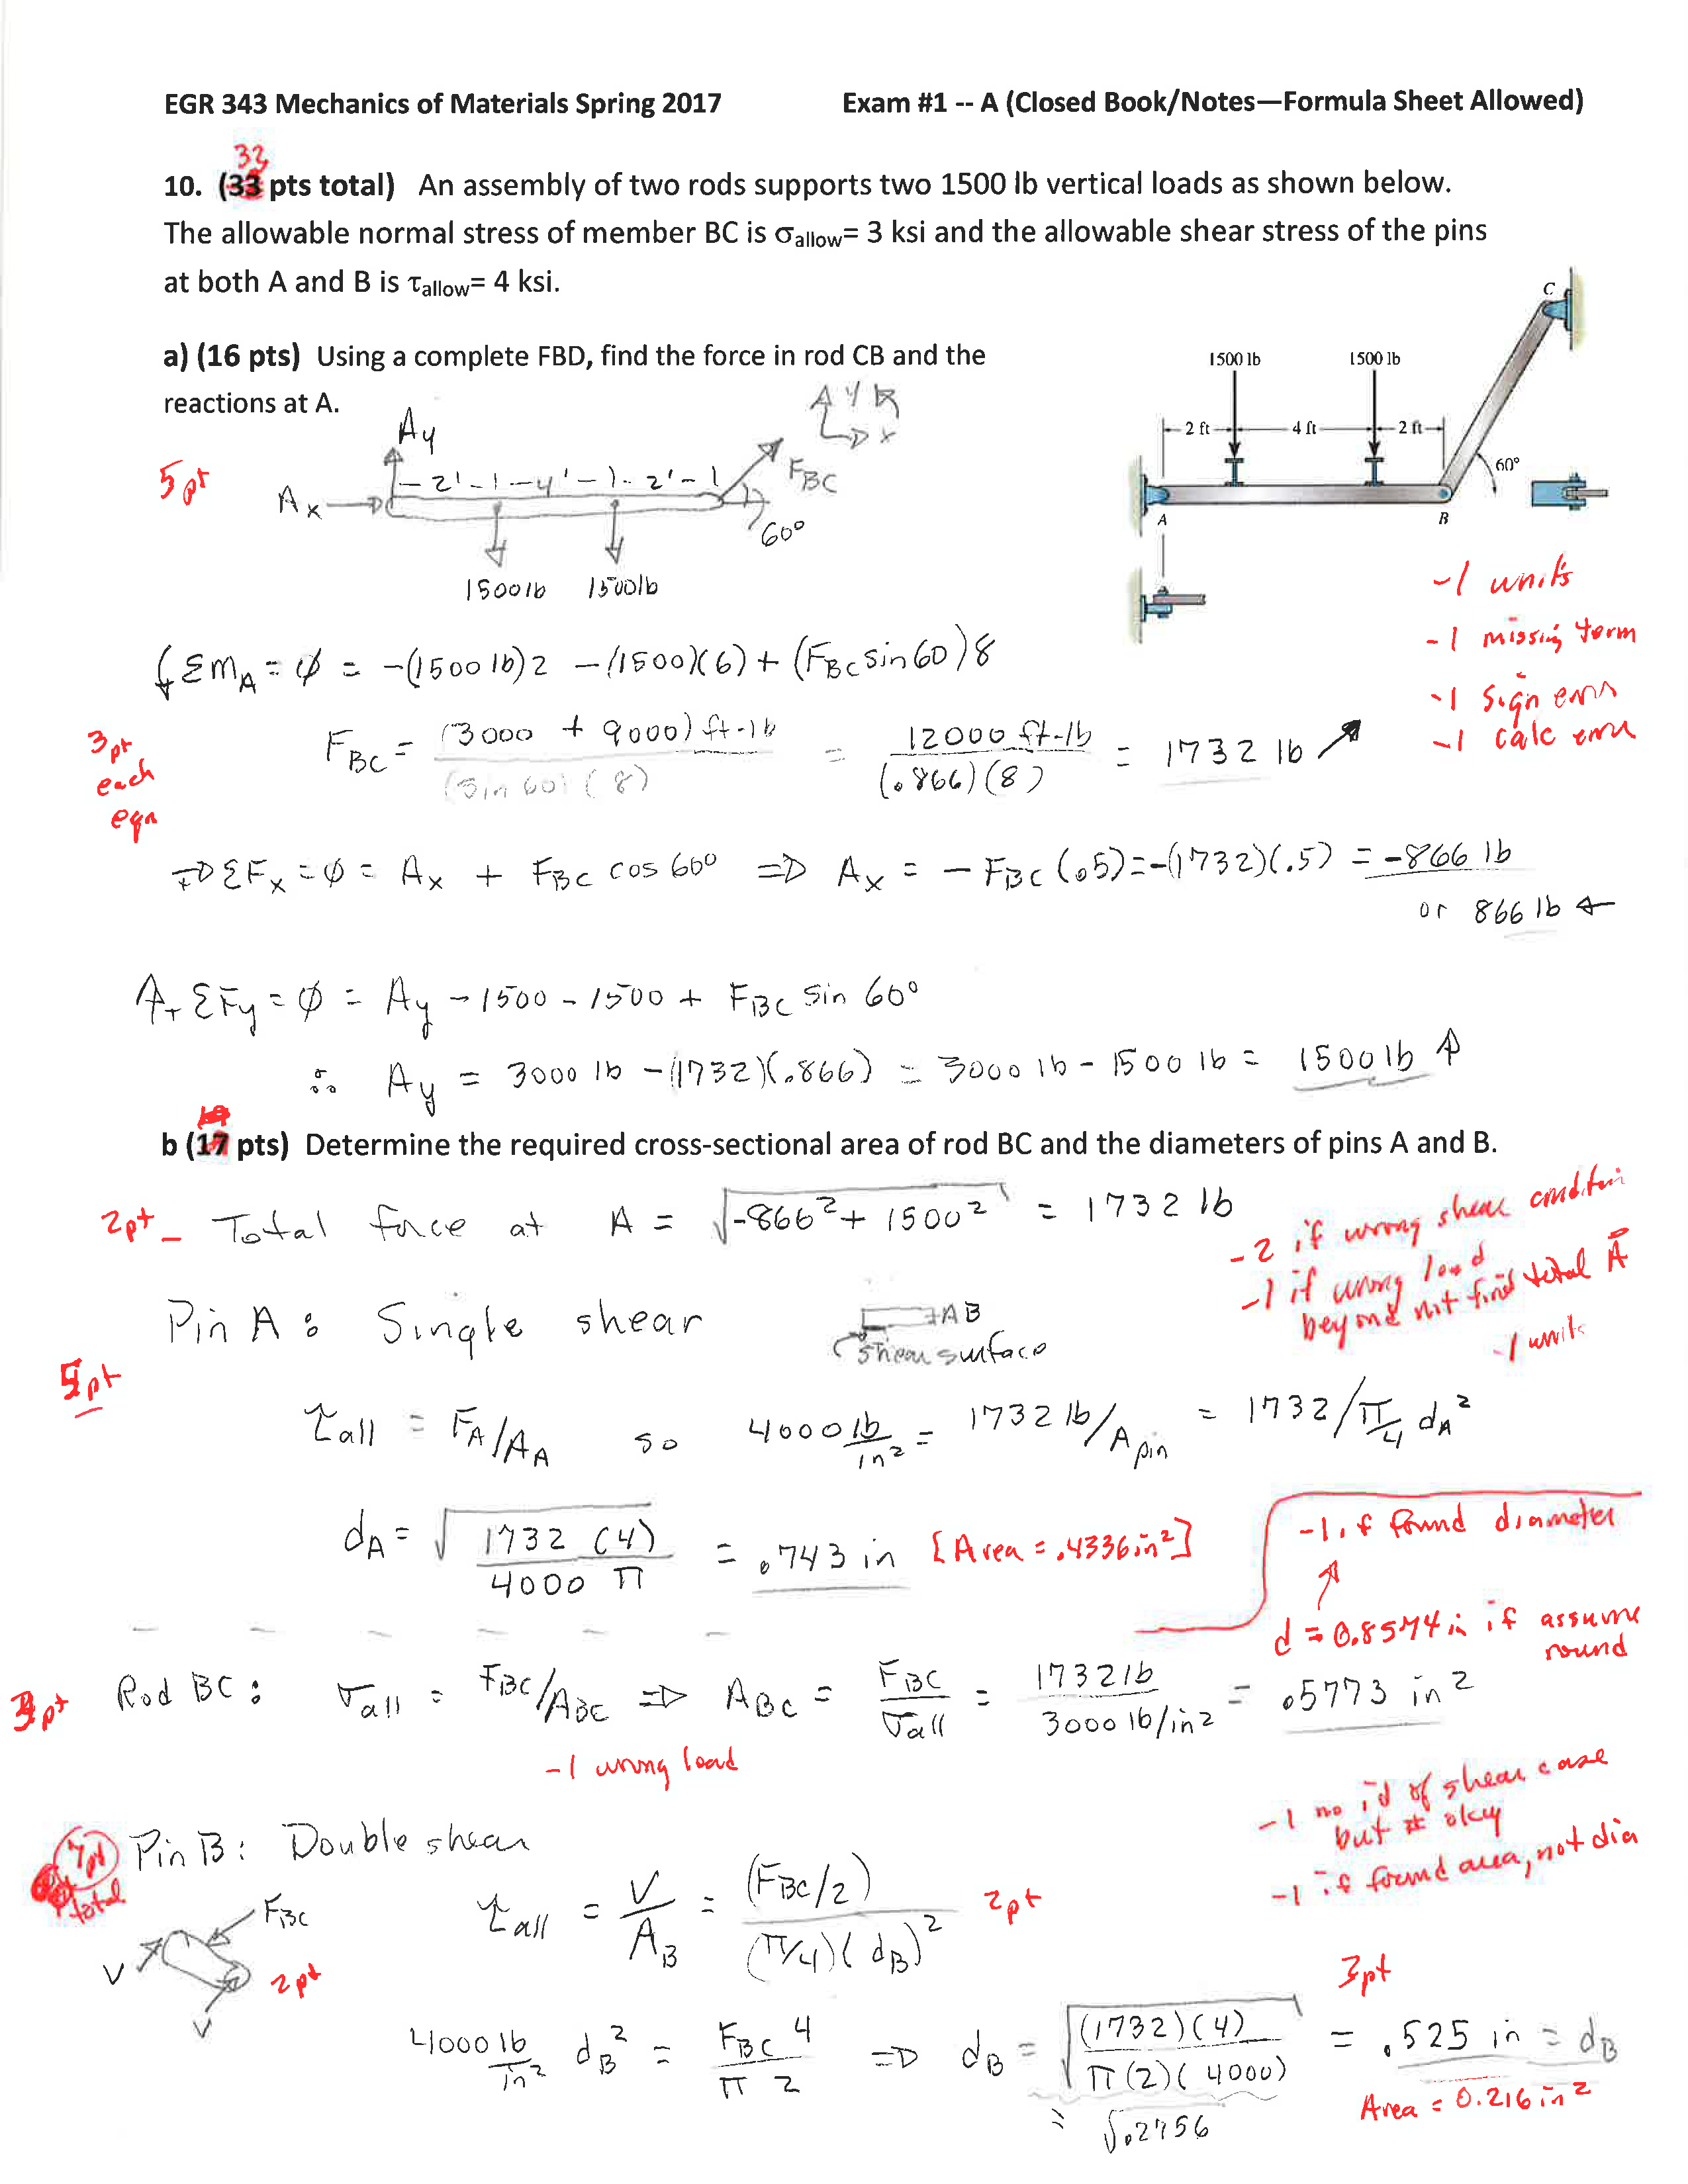 EGR 343 Mechanics of Materials Spring 2017 Exam #1 -- A (Closed Book/Notes—Formula Sheet Allowed)
32
10. (33 pts total) An assembly of two rods supports two 1500 lb vertical loads as shown below.
The allowable normal stress of member BC is σallow= 3 ksi and the allowable shear stress of the pins
at both A and B is τallow= 4 ksi.
a) (16 pts) Using a complete FBD, find the force in rod CB and the
reactions at A.
C
1500 lb 1500 lb
2 ft 4 ft 2 ft
60°
A B
5 pt
Ay
y
x
Ax
2' 4' 2'
FBC
60°
1500 lb 1500 lb
-1 units
-1 missing term
-1 sign error
-1 calc error
ΣMA = φ = -(1500 lb)2 - (1500)(6) + (FBC sin 60)8
3 pt each eqn
FBC = (3000 + 9000) ft-lb / (sin 60)(8) = 12000 ft-lb / (.866)(8) = 1732 lb ↗
→+ ΣFx = φ = Ax + FBC cos 60° ⇒ Ax = -FBC (.5) = -(1732)(.5) = -866 lb
or 866 lb ←
↑+ ΣFy = φ = Ay - 1500 - 1500 + FBC sin 60°
∴ Ay = 3000 lb - (1732)(.866) = 3000 lb - 1500 lb = 1500 lb ↑
b (17 pts) Determine the required cross-sectional area of rod BC and the diameters of pins A and B.
2pt - Total force at A = √-866² + 1500² = 1732 lb
-2 if wrong shear condition
-1 if wrong load
beyond not find total A
-1 units
Pin A: Single shear
AB
shear surface
5pt
τall = FA/AA so 4000 lb/in² = 1732 lb/Apin = 1732/π/4 dA²
dA = √1732 (4) / 4000 π = .743 in [Area = .4336 in²]
-1 if found diameter
d = 0.8574 in if assume round
3pt Rod BC: σall = FBC/ABC ⇒ ABC = FBC/σall = 1732 lb / 3000 lb/in² = .5773 in²
-1 wrong load
-1 no id of shear case
but # okay
-1 if found area, not dia
7pt total
Pin B: Double shear
FBC
V
V
2pt
τall = V/AB = (FBC/2) / (π/4)(dB)² 2pt
3pt
4000 lb/in² dB² = FBC 4 / π 2 ⇒ dB = √(1732)(4) / π(2)(4000) = .525 in = dB
= √.2756
Area = 0.216 in²